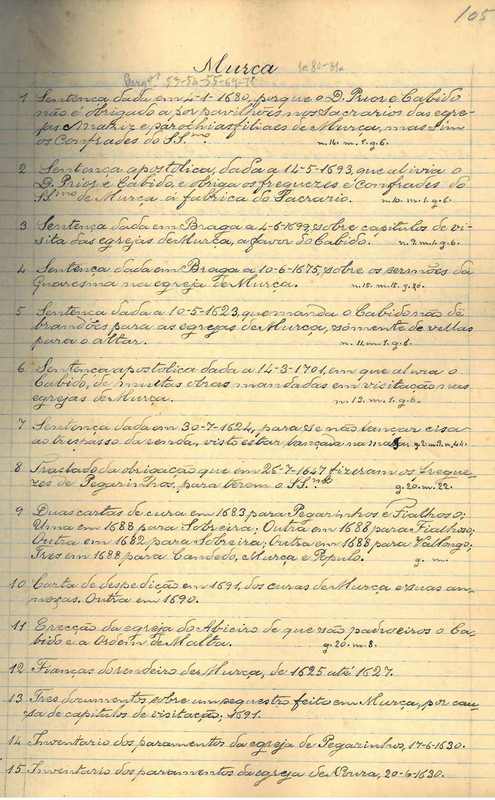 105
Murça
53-54-55-69-71
80-81
1 Sentença dada em 4-1-1630, porque o D. Prior e Cabido
não é obrigado a por pavilhões nos Sacrarios das egre-
jas Matriz e parochias filiaes de Murça, mas sim
os Confrades do SS.mo n.14. m.1. g.6.
2 Sentença apostolica, dada a 14-5-1693, que alivia o
D. Prior e Cabido e obriga os freguezes e confrades do
SS.mo de Murça á fabrica do Sacrario. n.10. m.1. g.6.
3 Sentença dada em Braga a 4-6-1699, sobre capitulos de vi-
sita das egrejas de Murça, a favor do Cabido. n.9. m.1. g.6.
4 Sentença dada em Braga a 10-6-1675, sobre os sermões da
Quaresma na egreja de Murça. n.15. m.15. g.20.
5 Sentença dada a 10-5-1623, que manda o Cabido não dê
brandões para as egrejas de Murça, sómente de vellas
para o altar. n.11. m.1. g.6.
6 Sentença apostolica dada a 14-3-1701, em que alivia o
Cabido, de muitas obras mandadas em visitação nas
egrejas de Murça. n.13. m.1. g.6.
7 Sentença dada em 30-7-1624, para se não lançar cisa
ao trespasso da renda, visto estar lançada na g.2. m.2. n.46.
8 Traslado da obrigação que em 26-7-1647 fizeram os fregue-
zes de Pegarinhos, para terem o SS.mo g.20. m.22.
9 Duas cartas de cura em 1683 para Pegarinhos e Fialhoso;
Uma em 1688 para Sobreira; Outra em 1688 para Fialhoso;
Outra em 1682 para Sobreira; Outra em 1688 para Vallongo;
Tres em 1688 para Candedo, Murça e Populo. g. m.
10 Carta de despedição em 1691, dos curas de Murça e suas an-
nexas. Outra em 1690.
11 Erecção da egreja do Abieiro de que são padroeiros o Ca-
bido e a Ordem de Malta. g.20. m.8.
12 Fianças do rendeiro de Murça, de 1625 até 1627.
13 Tres documentos sobre um sequestro feito em Murça, por cau-
sa de capitulos de visitação; 1691.
14 Inventario dos paramentos da egreja de Pegarinhos, 17-6-1630.
15 Inventario dos paramentos da egreja de Noura, 20-6-1630.